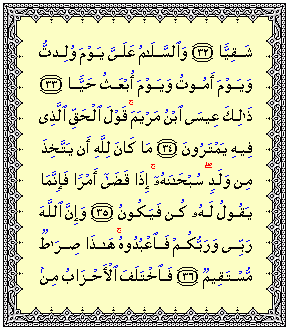 شَقِيًّا ﴿٣٢﴾ وَٱلسَّلَـٰمُ عَلَىَّ يَوْمَ وُلِدتُّ
وَيَوْمَ أَمُوتُ وَيَوْمَ أُبْعَثُ حَيًّا ﴿٣٣﴾
ذَٰلِكَ عِيسَى ٱبْنُ مَرْيَمَ ۚ قَوْلَ ٱلْحَقِّ ٱلَّذِى
فِيهِ يَمْتَرُونَ ﴿٣٤﴾ مَا كَانَ لِلَّهِ أَن يَتَّخِذَ
مِن وَلَدٍ ۖ سُبْحَـٰنَهُۥٓ ۚ إِذَا قَضَىٰٓ أَمْرًا فَإِنَّمَا
يَقُولُ لَهُۥ كُن فَيَكُونُ ﴿٣٥﴾ وَإِنَّ ٱللَّهَ
رَبِّى وَرَبُّكُمْ فَٱعْبُدُوهُ ۚ هَـٰذَا صِرَٰطٌ
مُّسْتَقِيمٌ ﴿٣٦﴾ فَٱخْتَلَفَ ٱلْأَحْزَابُ مِنۢ